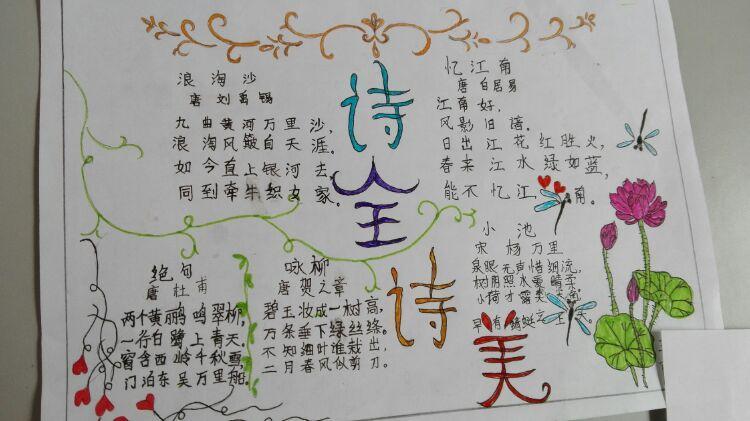 浪淘沙
唐 刘禹锡
九曲黄河万里沙，
浪淘风簸自天涯。
如今直上银河去，
同到牵牛织女家。
诗全诗美
忆江南
唐 白居易
江南好，
风影旧谙。
日出江花红胜火，
春来江水绿如蓝，
能不忆江南。
小池
宋 杨万里
泉眼无声惜细流，
树阴照水爱晴柔
小荷才露尖角
早有蜻蜓立上头。
绝句
唐 杜甫
两个黄鹂鸣翠柳，
一行白鹭上青天。
窗含西岭千秋雪，
门泊东吴万里船。
咏柳
唐 贺之章
碧玉妆成一树高，
万条垂下绿丝绦。
不知细叶谁裁出，
二月春风似剪刀。